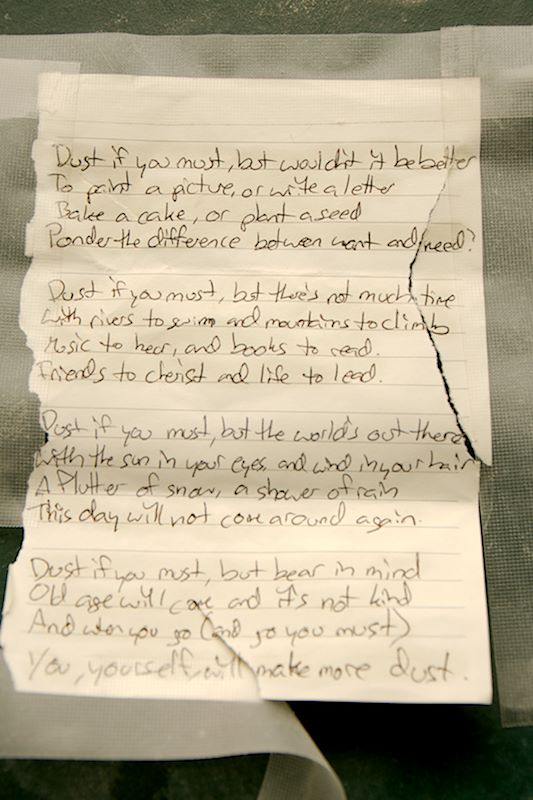 Dust if you must, but wouldn't it be better
To paint a picture, or write a letter
Bake a cake, or plant a seed
Ponder the difference between want and need?
Dust if you must, but there's not much time
With rivers to swim and mountains to climb
Music to hear, and books to read.
Friends to cherish and life to lead.
Dust if you must, but the world's out there
With the sun in your eyes, and wind in your hair
A flutter of snow, a shower of rain
This day will not come around again.
Dust if you must, but bear in mind
Old age will come and it's not kind
And when you go (and go you must)
You, yourself, will make more dust.